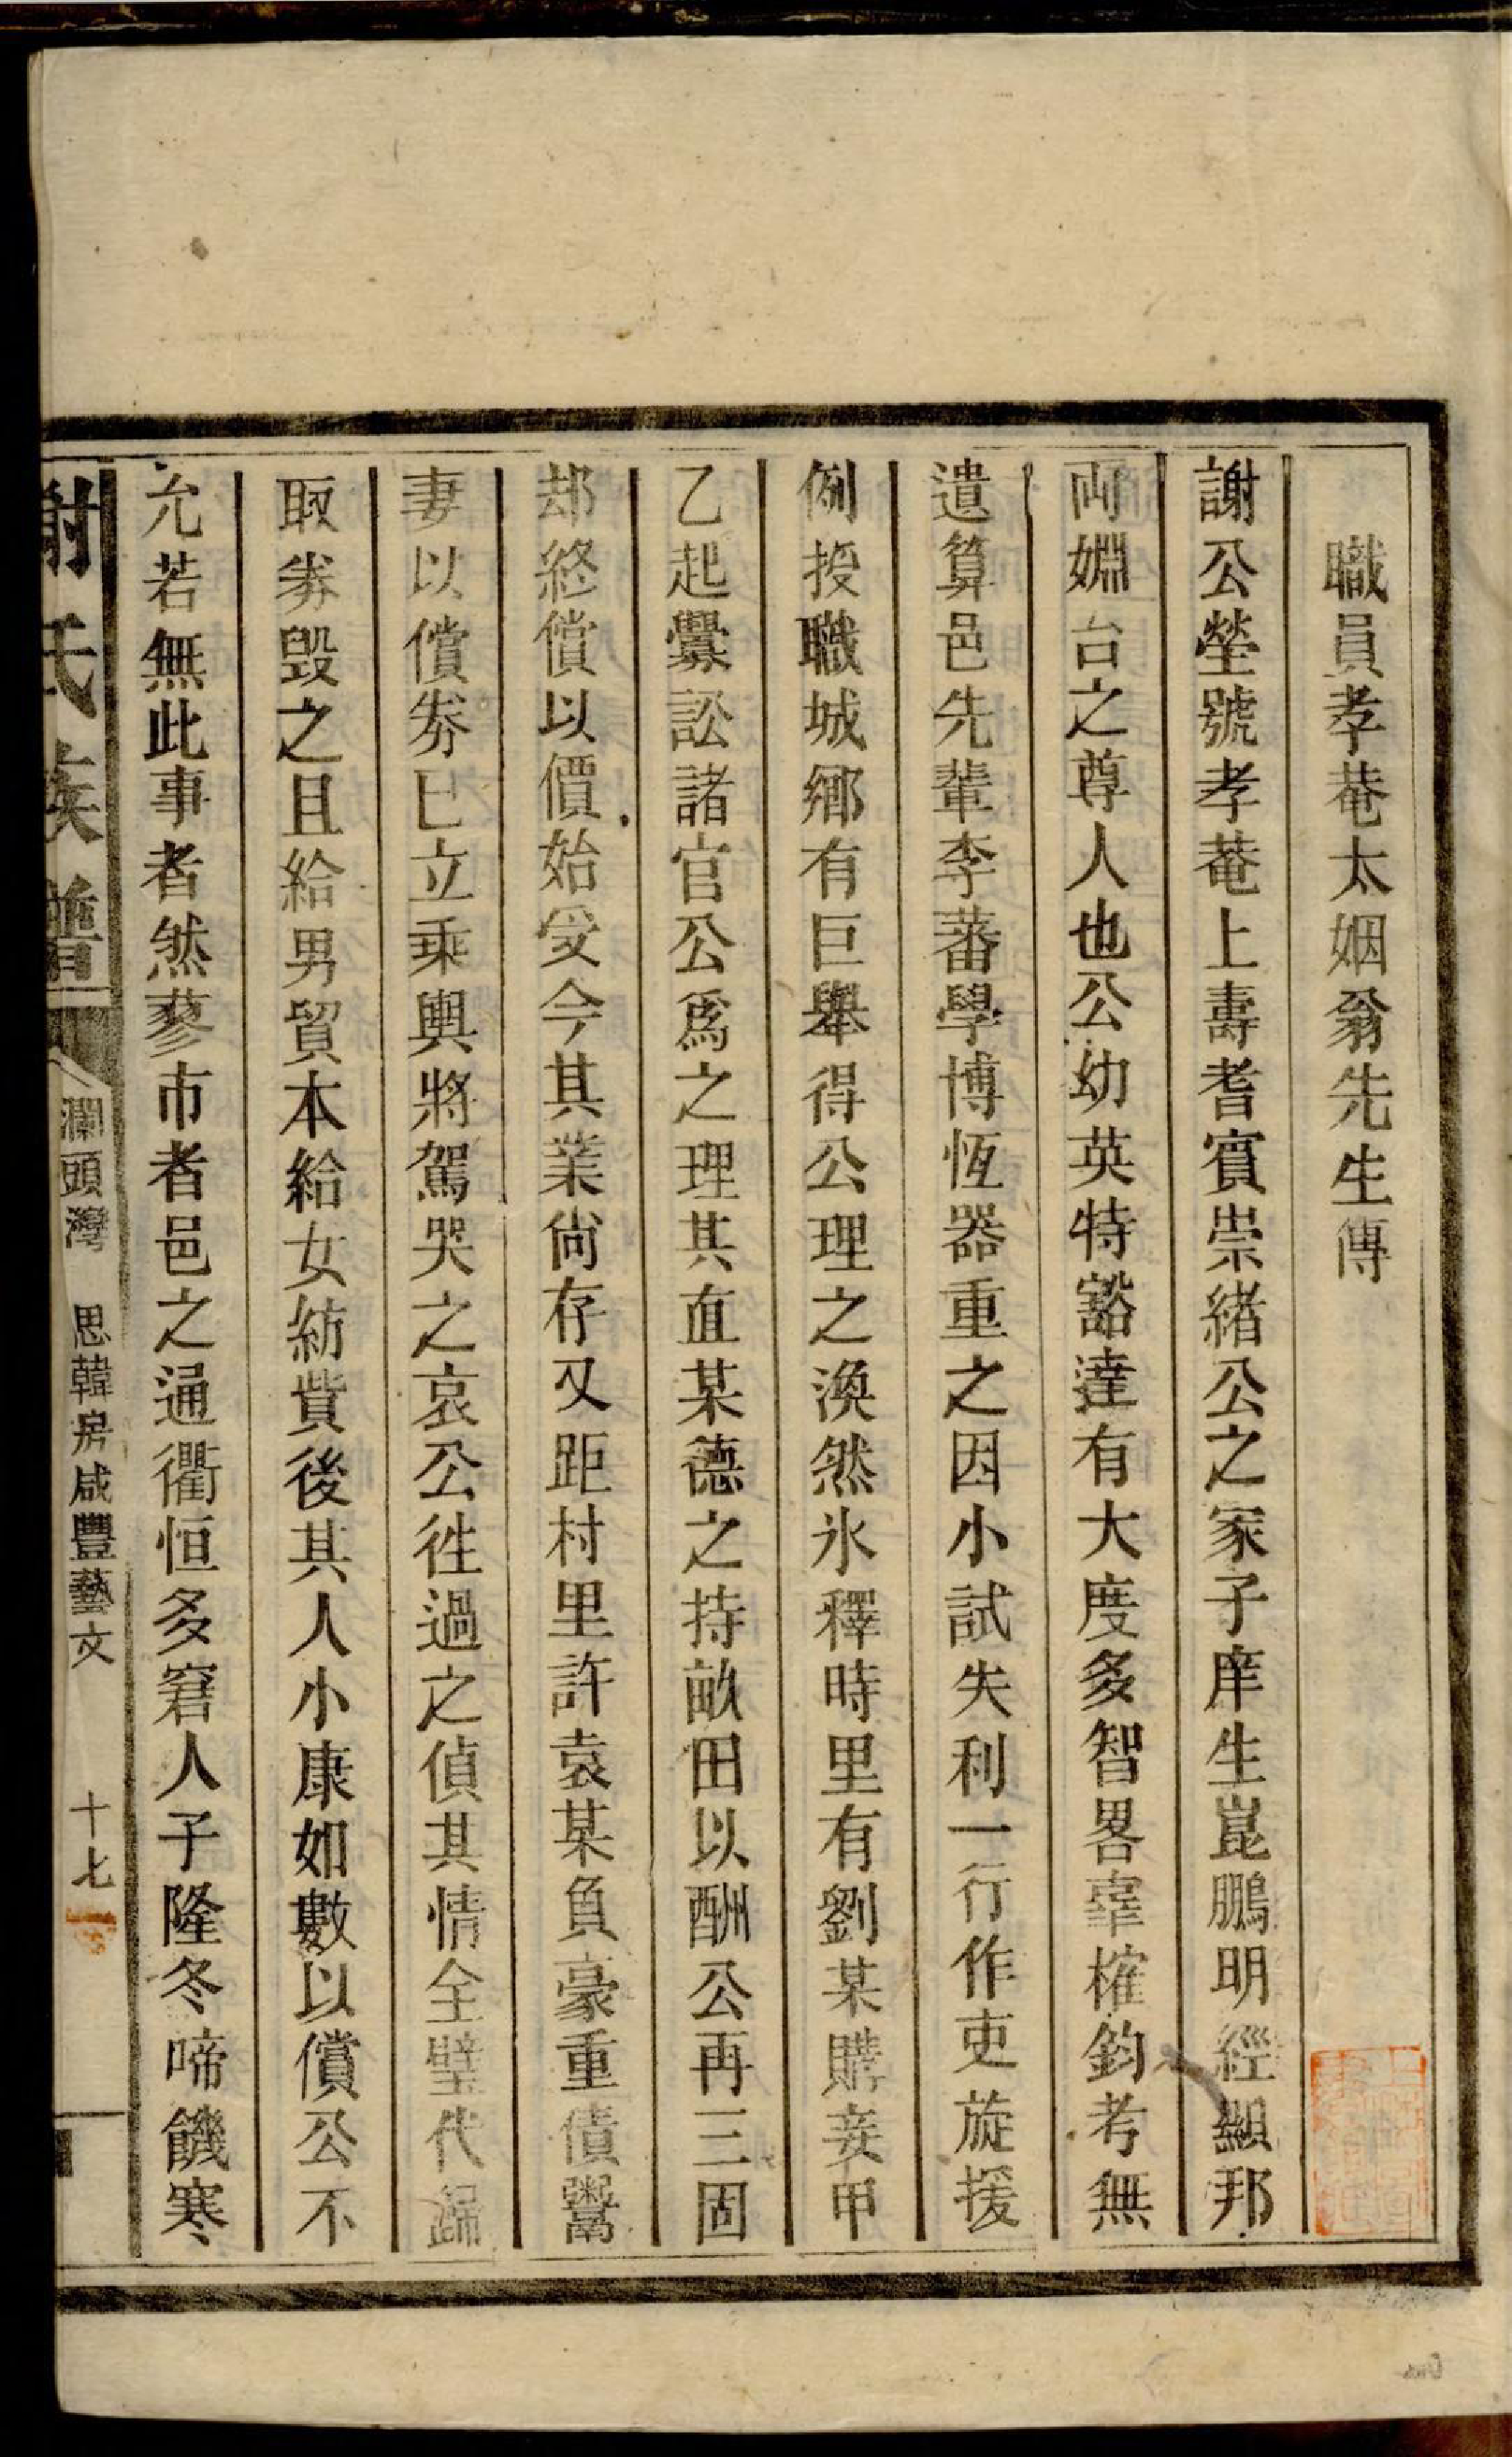 職員孝菴太姻翁先生傳
謝公瑩號孝菴上壽耆賓崇緒公之冢子庠生崑鵬明經顯邦
両姻台之尊人也公幼英特豁達有大度多智畧辜榷鈞考無
遺算邑先輩李蕃學博恆器重之因小試失利一行作吏旋援
例授職城鄉有巨舉得公理之渙然氷釋時里有劉某購妾甲
乙起釁訟諸官公爲之理其直某德之持畝田以酬公再三固
却終償以價始受今其業尙存又距村里許袁某負豪重債鬻
妻以償劵已立乘輿將駕哭之哀公徃過之偵其情全璧代歸
取劵毀之且給男貿本給女紡貲後其人小康如數以償公不
允若無此事者然蓼市者邑之通衢恒多窘人子隆冬啼饑寒
謝氏族譜
瀾頭灣 思韓房咸豐藝文 十七